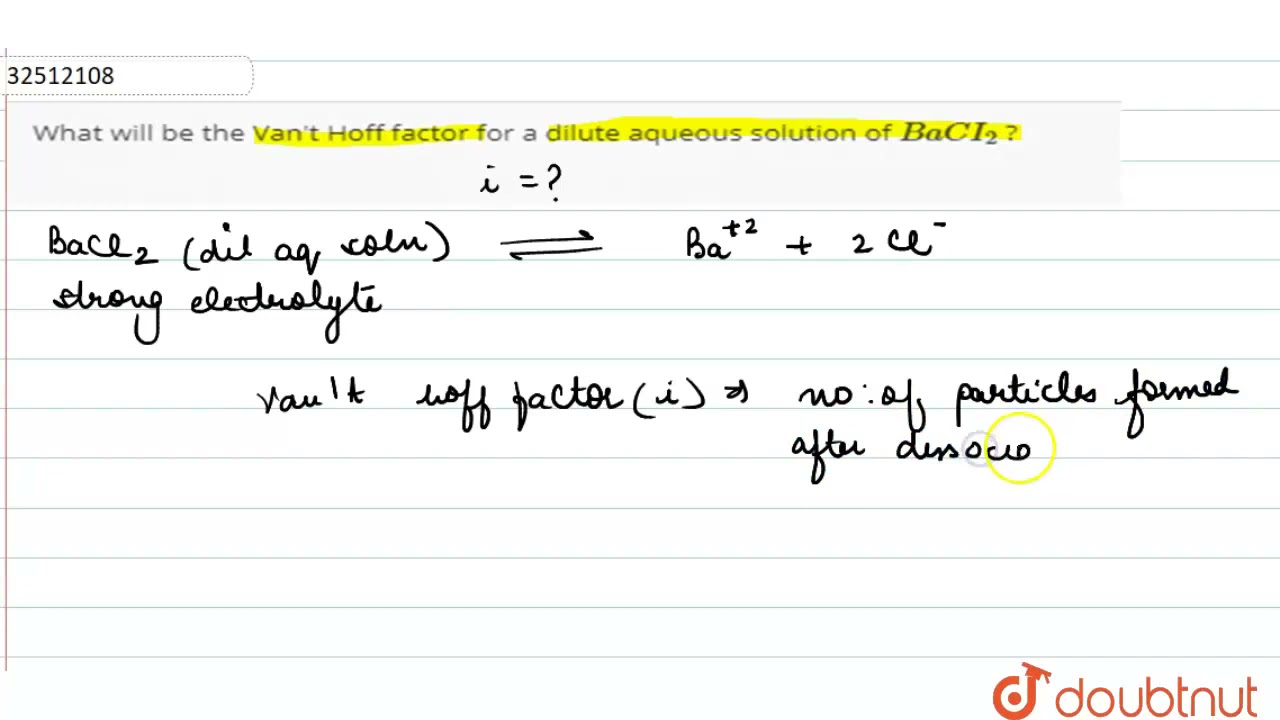 32512108
What will be the Van't Hoff factor for a dilute aqueous solution of BaCI₂ ?
i = ?
BaCl₂ (dil aq soln) ⇌ Ba⁺² + 2Cl⁻
strong electrolyte
van't hoff factor (i) ⇒ no: of particles formed
after dissocio
doubtnut